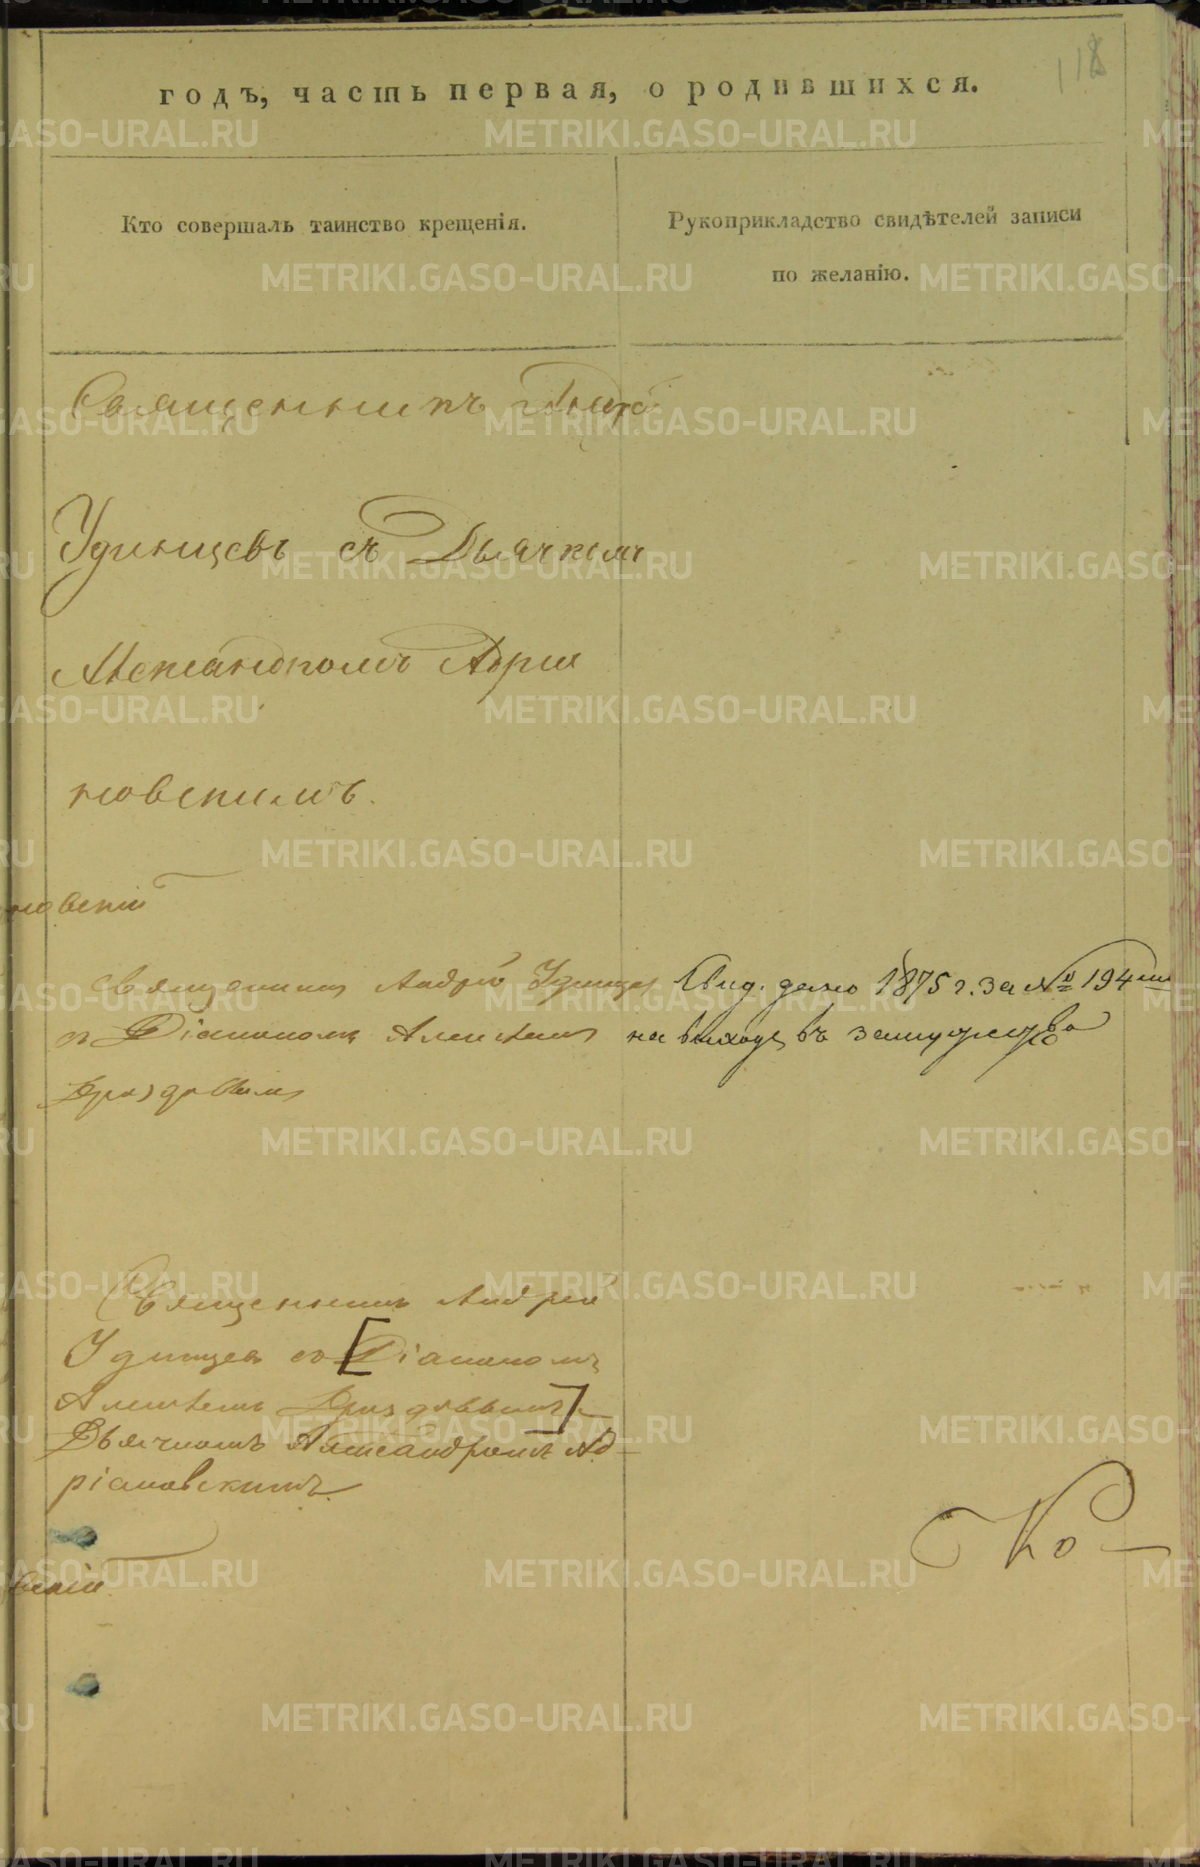 118
годъ, часть первая, о родившихся.
Кто совершалъ таинство крещенія.
Рукоприкладство свидѣтелей записи
по желанію.
Священникъ Андрей
Удинцевъ съ Дьячкомъ
Александромъ Адріа
новскимъ.
новскій
Священникъ Андрей Удинцевъ
съ Діакономъ Алексѣемъ
Дроздовымъ
Свид. дано 1875 г. за № 194 мъ
на выходъ въ замужество
Священникъ Андрей
Удинцевъ съ [Діакономъ
Алексѣемъ Дроздовымъ]
Дьячкомъ Александромъ Ад-
ріановскимъ
скій
Ко-
METRIKI.GASO-URAL.RU